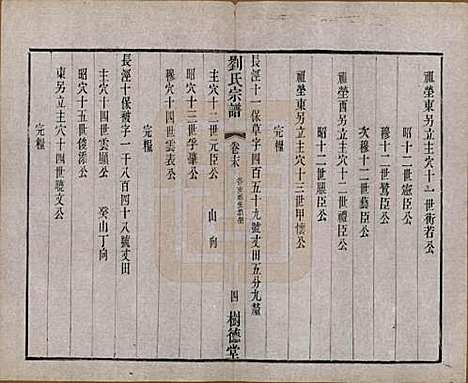 祖塋東另立主穴十一世衡若公
昭十二世憲臣公
穆十二世鷺臣公
次穆十二世藝臣公
祖塋酉另立主穴十二世禮臣公
昭十二世驥臣公
祖塋東另立主穴十三世甲懷公
完糧
長涇十一保草字四百五十九號丈田五分九釐
劉氏宗譜
卷末
四
樹德堂
主穴十二世元臣公
山向
昭穴十三世學謙公
穆穴十四世雲表公
完糧
長涇十保被字一千八百四十八號丈田
主穴十四世雲顯公
癸山丁向
昭穴十五世俊添公
東另立主穴十四世聽文公
完糧